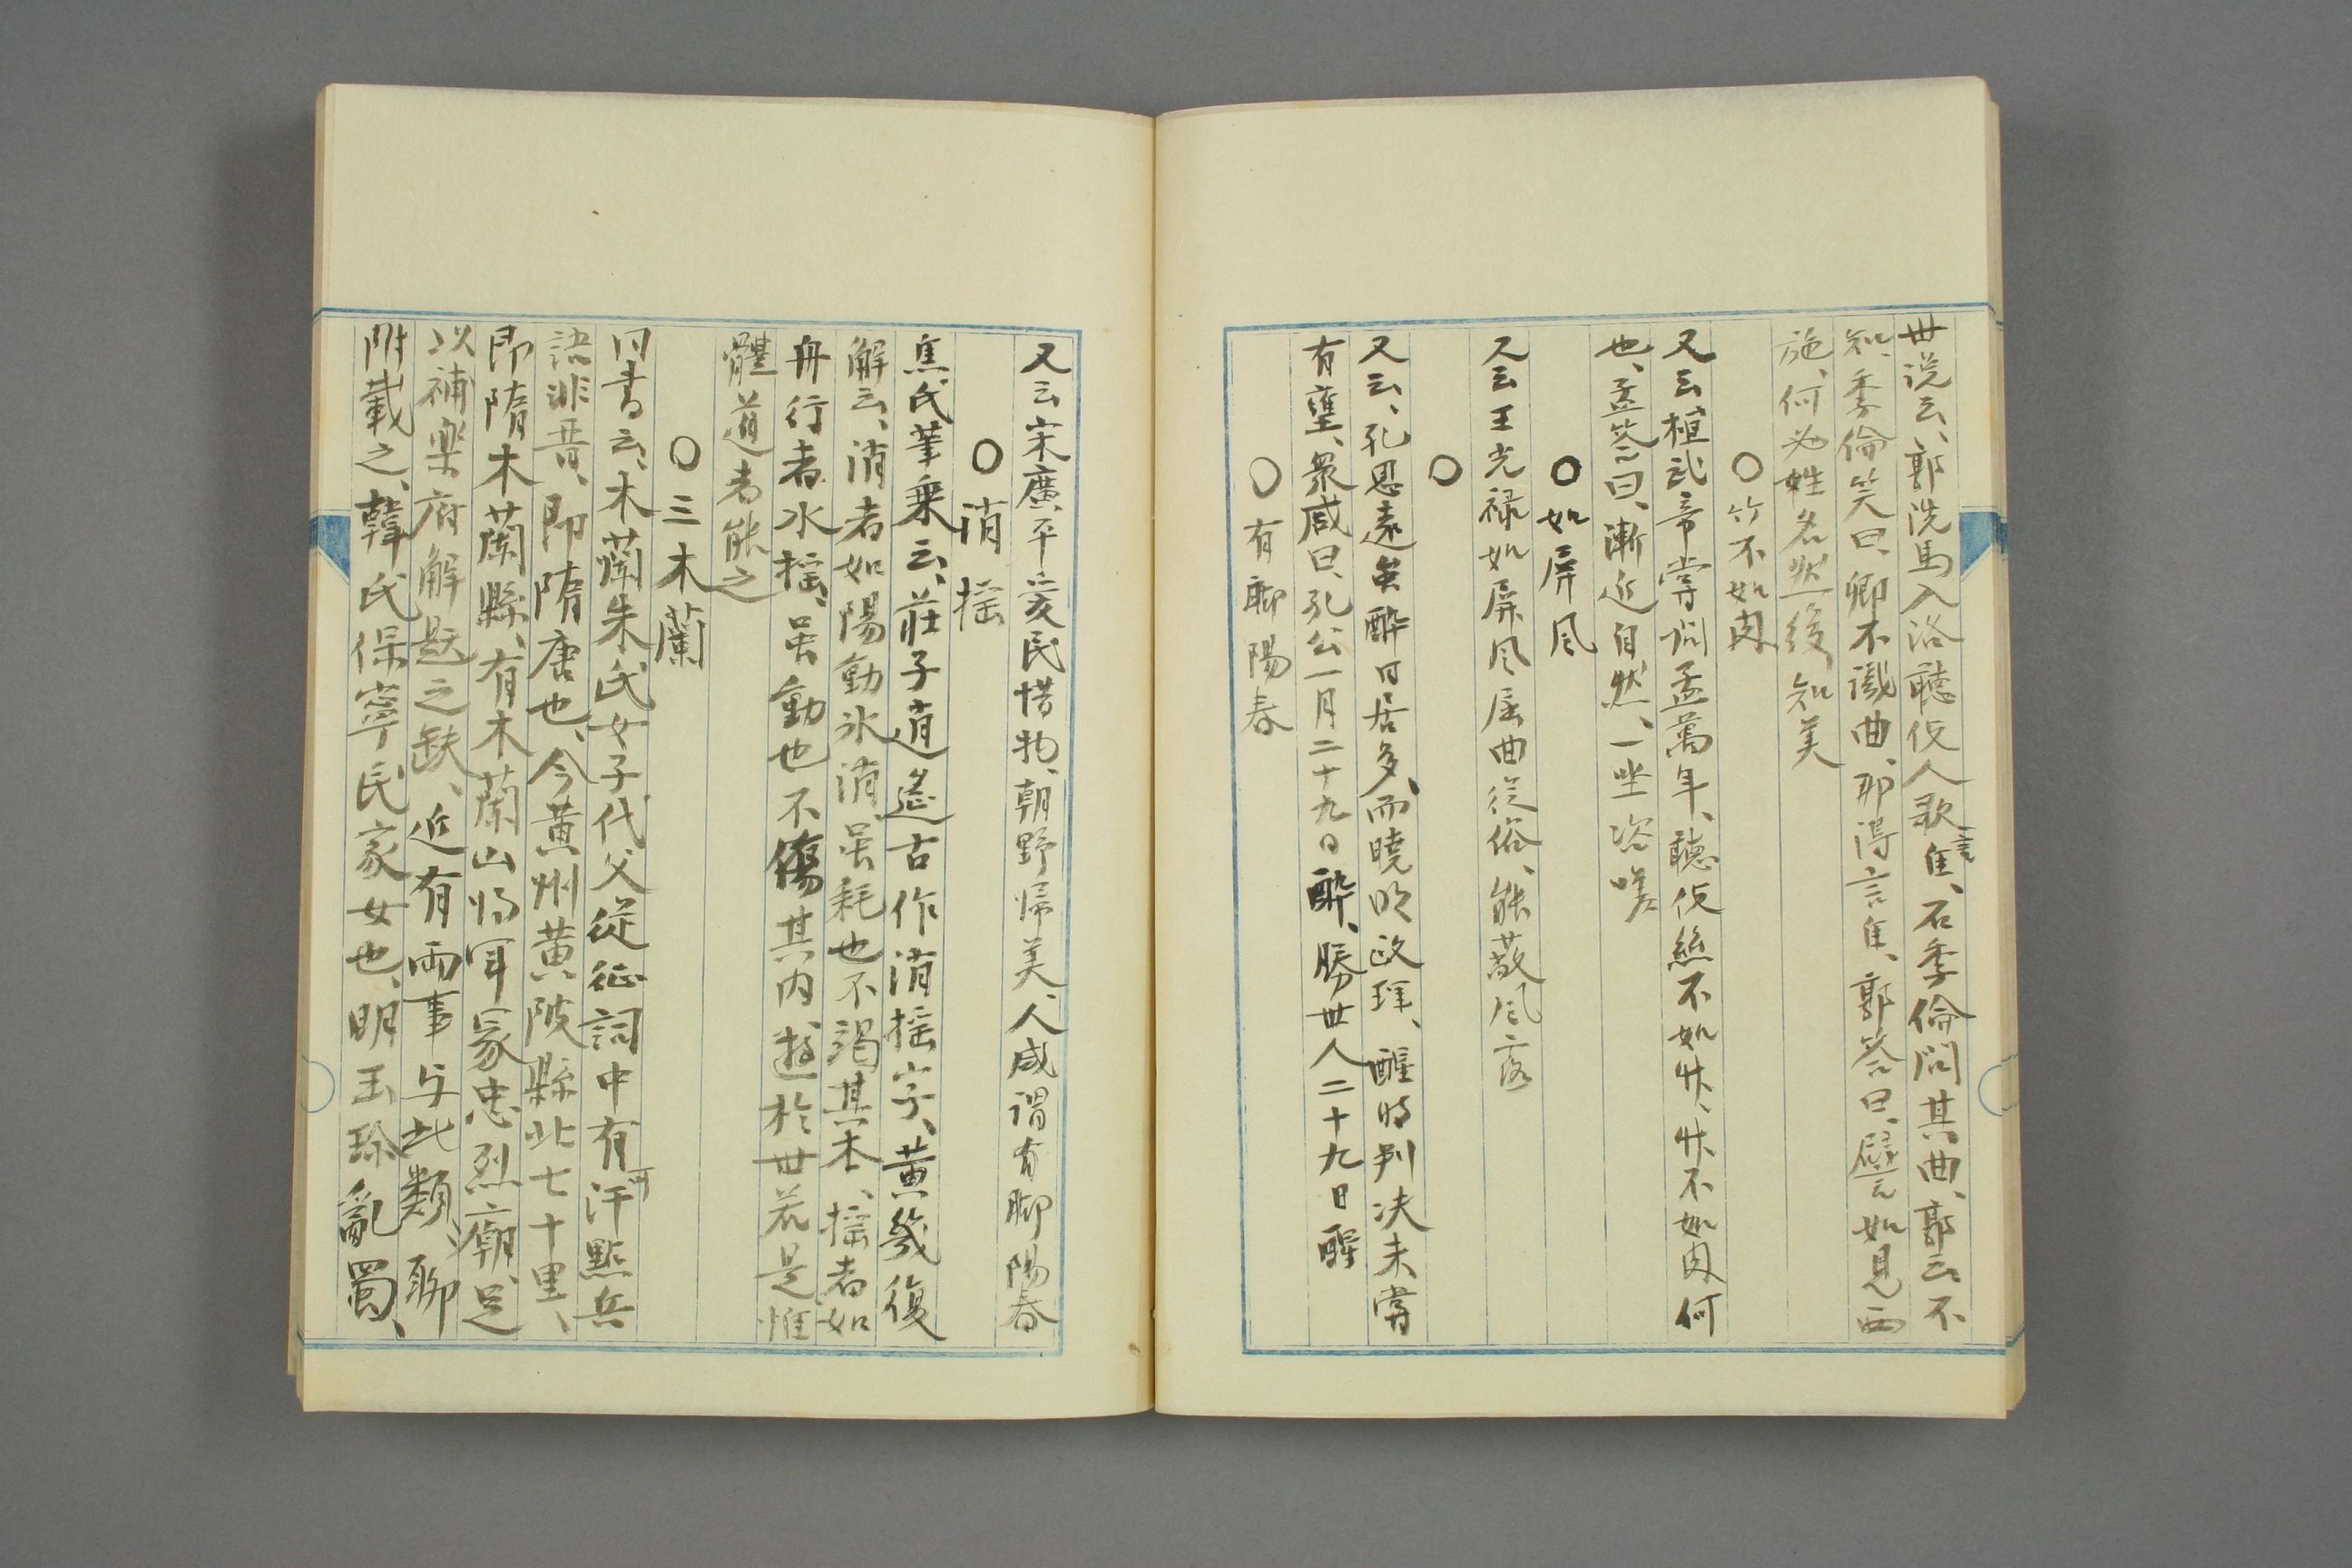 世説云、郭洗馬入洛聽伎人歌言佳、石季倫問其曲、郭云、不
知、季倫笑曰、卿不識曲、那得言佳、郭答曰、譬如見西
施、何必姓名然後知美
○竹不如肉
又云、桓武帝嘗问孟萬年、聽伎絲不如竹、竹不如肉何
也、孟答曰、漸近自然、一坐咨嗟
○如屏风
又云王光禄如屏风屈曲從俗、能蔽风露
○
又云、孔思遠虽醉日居多、而曉明政理、醒时判决未嘗
有壅、衆咸曰、孔公一月二十九日醉、勝世人二十九日醒
○有脚陽春
又云宋廣平爱民惜物、朝野帰美、人咸謂有脚陽春
○消摇
焦氏筆乗云、莊子逍遥古作消摇字、黄幾復
解云、消者如陽動氷消、虽耗也不渴其本、摇者如
舟行者水摇、虽動也不傷其内遊於世若是惟
體道者能之
○三木蘭
同書云、木蘭朱氏女子代父從征詞中有可汗點兵
語非晋、即隋唐也、今黄州黄陂縣北七十里、
即隋木蘭縣、有木蘭山将軍冢忠烈廟、足
以補樂府解題之缺、近有両事与此類、聊
附載之、韓氏保寧民家女也、明玉珍亂蜀、